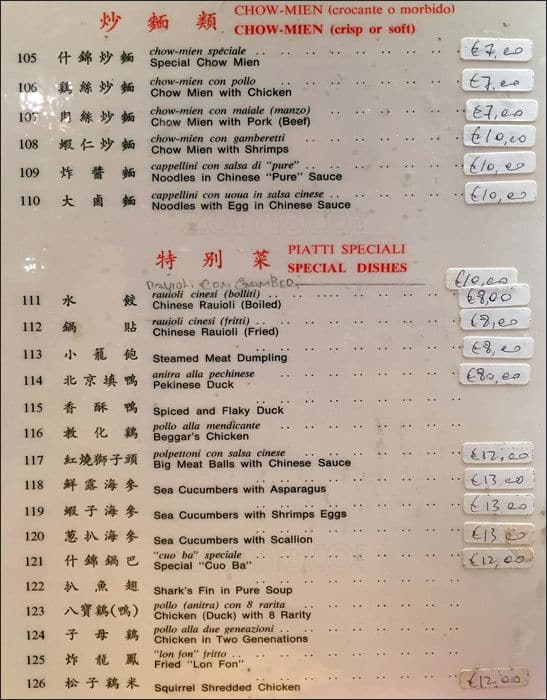 炒麵類 CHOW-MIEN (crocante o morbido)
CHOW-MIEN (crisp or soft)
105 什錦炒麵 chow-mien speciale €7,00
Special Chow Mien
106 鷄絲炒麵 chow-mien con pollo €7,00
Chow Mien with Chicken
107 肉絲炒麵 chow-mien con maiale (manzo) €7,00
Chow Mien with Pork (Beef)
108 蝦仁炒麵 chow-mien con gamberetti €10,00
Chow Mien with Shrimps
109 炸醬麵 cappellini con salsa di "pure" €10,00
Noodles in Chinese "Pure" Sauce
110 大鹵麵 cappellini con uoua in salsa cinese €10,00
Noodles with Egg in Chinese Sauce
特别菜 PIATTI SPECIALI
SPECIAL DISHES
RAVIOLI CON GAMBERI €10,00
111 水餃 rauioli cinesi (bolliti) €8,00
Chinese Rauioli (Boiled)
112 鍋貼 rauioli cinesi (fritti) €8,00
Chinese Rauioli (Fried)
113 小籠飽 Steamed Meat Dumpling €8,00
114 北京填鴨 anitra alla pechinese €80,00
Pekinese Duck
115 香酥鴨 Spiced and Flaky Duck
116 教化鷄 pollo alla mendicante
Beggar's Chicken
117 紅燒獅子頭 polpettoni con salsa cinese €12,00
Big Meat Balls with Chinese Sauce
118 鮮露海參 Sea Cucumbers with Asparagus €13,00
119 蝦子海參 Sea Cucumbers with Shrimps Eggs €13,00
120 葱扒海參 Sea Cucumbers with Scallion €13,00
121 什錦鍋巴 "cuo ba" speciale €12,00
Special "Cuo Ba"
122 扒魚翅 Shark's Fin in Pure Soup
123 八寶鷄(鴨) pollo (anitra) con 8 rarita
Chicken (Duck) with 8 Rarity
124 子母鷄 pollo alla due geneazioni
Chicken in Two Genenations
125 炸龍鳳 "lon fon" fritto
Fried "Lon Fon"
126 松子鷄米 Squirrel Shredded Chicken €12,00